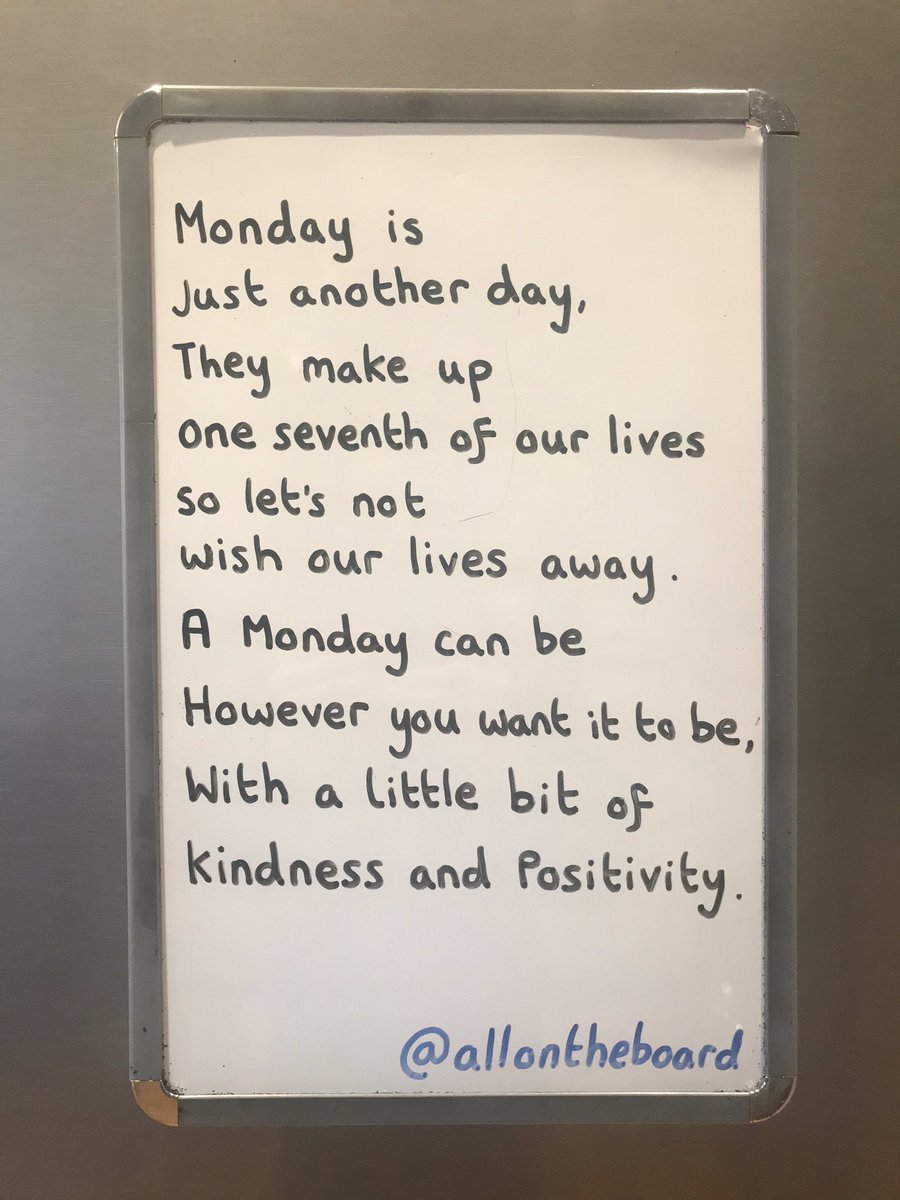 Monday is
Just another day,
They make up
one seventh of our lives
so let's not
wish our lives away.
A Monday can be
However you want it to be,
With a little bit of
kindness and Positivity.
@allontheboard